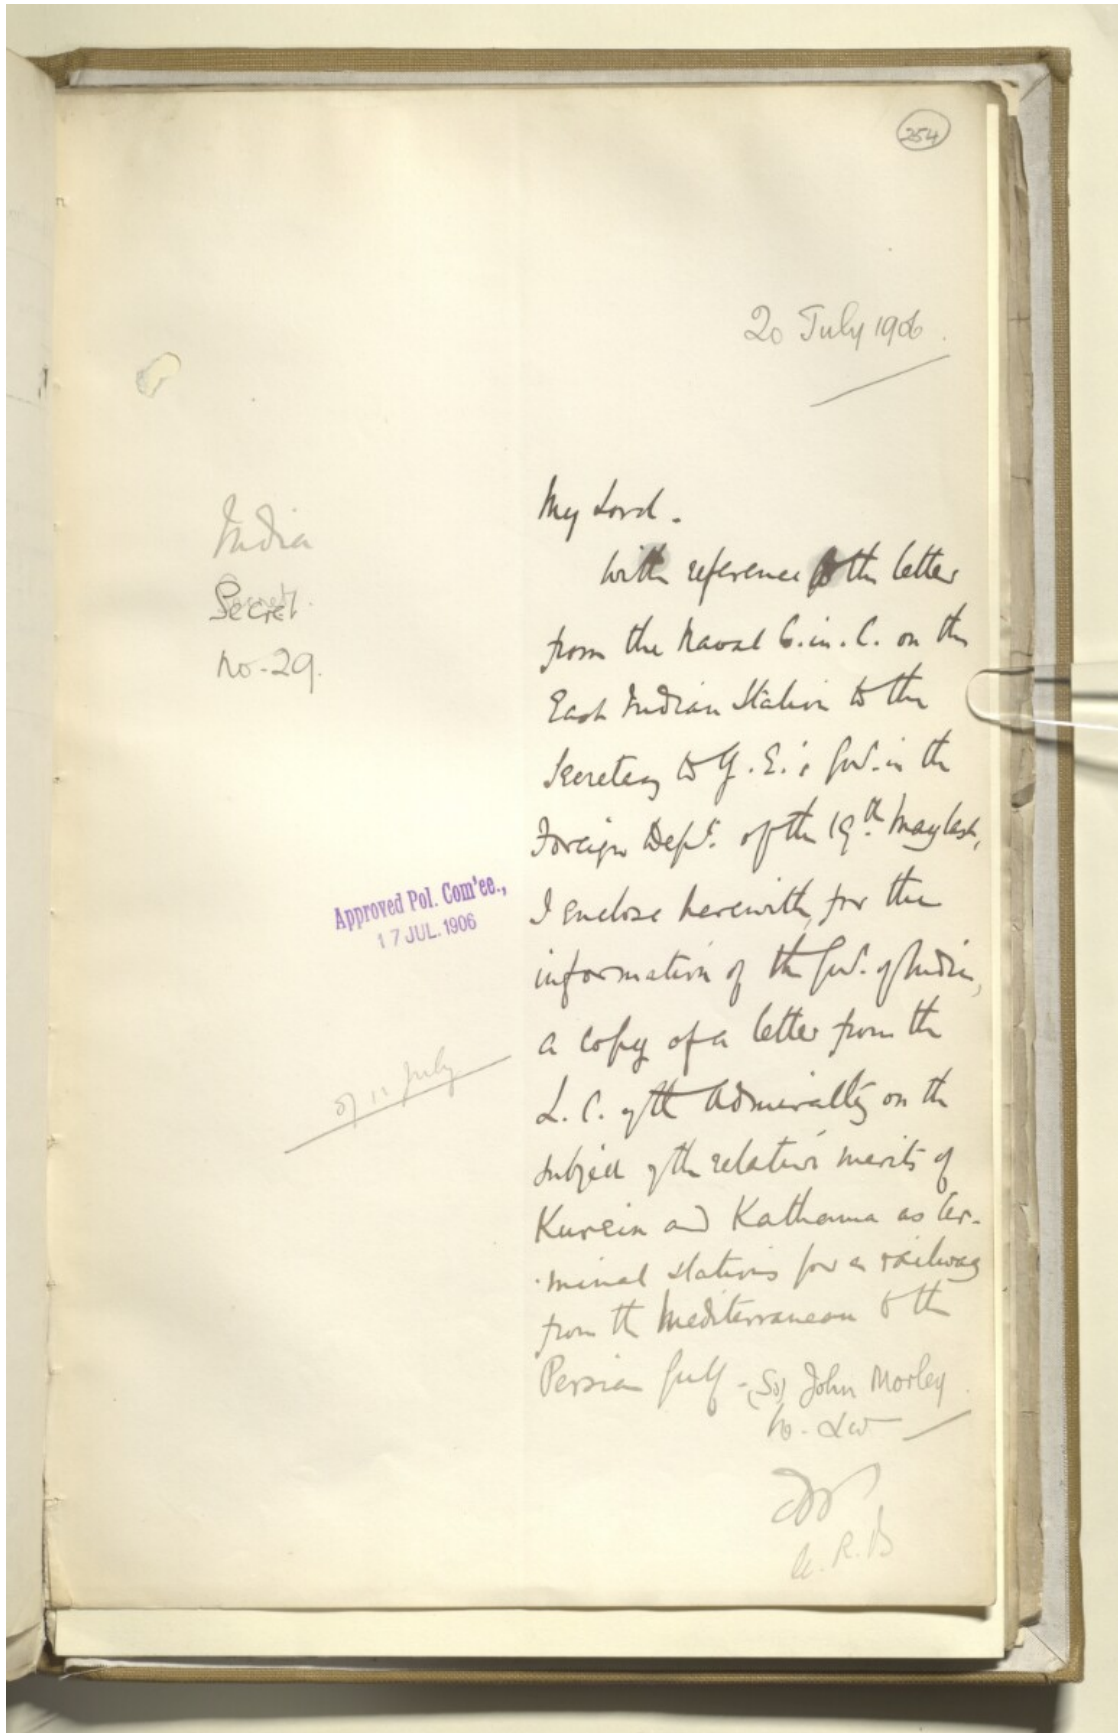 254
20 July 1906.
India
Secret.
No. 29.
My Lord.
With reference to the letter
from the Naval C. in. C. on the
East Indian Station to the
Secretary to Y. E.'s Govt. in the
Foreign Dept. of the 19th May last,
Approved Pol. Com'ee.,
17 JUL. 1906
I enclose herewith, for the
information of the Govt. of India,
a copy of a letter from the
of 11 July
L. C. of the Admiralty on the
subject of the relative merits of
Kurein and Kathama as ter-
-minal stations for a railway
from the Mediterranean to the
Persian Gulf - (Sd) John Morley.